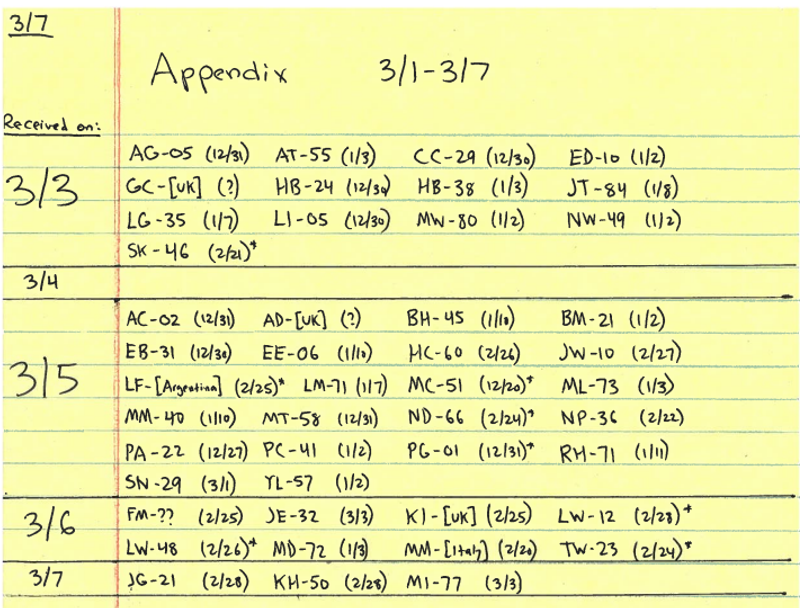 3/7
Appendix 3/1-3/7
Received on:
3/3
AG-05 (12/31) AT-55 (1/3) CC-29 (12/30) ED-10 (1/2)
GC-[UK] (?) HB-24 (12/30) HB-38 (1/3) JT-84 (1/8)
LG-35 (1/7) LI-05 (12/30) MW-80 (1/2) NW-49 (1/2)
SK-46 (2/21)*
3/4
3/5
AC-02 (12/31) AD-[UK] (?) BH-45 (1/10) BM-21 (1/2)
EB-31 (12/30) EE-06 (1/10) HC-60 (2/26) JW-10 (2/27)
LF-[Argentina] (2/25)* LM-71 (1/7) MC-51 (12/20)* ML-73 (1/3)
MM-40 (1/10) MT-58 (12/31) ND-66 (2/24)* NP-36 (2/22)
PA-22 (12/27) PC-41 (1/2) PG-01 (12/31)* RH-71 (1/11)
SN-29 (3/1) YL-57 (1/2)
3/6
FM-?? (2/25) JE-32 (3/3) KI-[UK] (2/25) LW-12 (2/28)*
LW-48 (2/26)* MD-72 (1/3) MM-[Italy] (2/20) TW-23 (2/24)*
3/7
JG-21 (2/28) KH-50 (2/28) MI-77 (3/3)